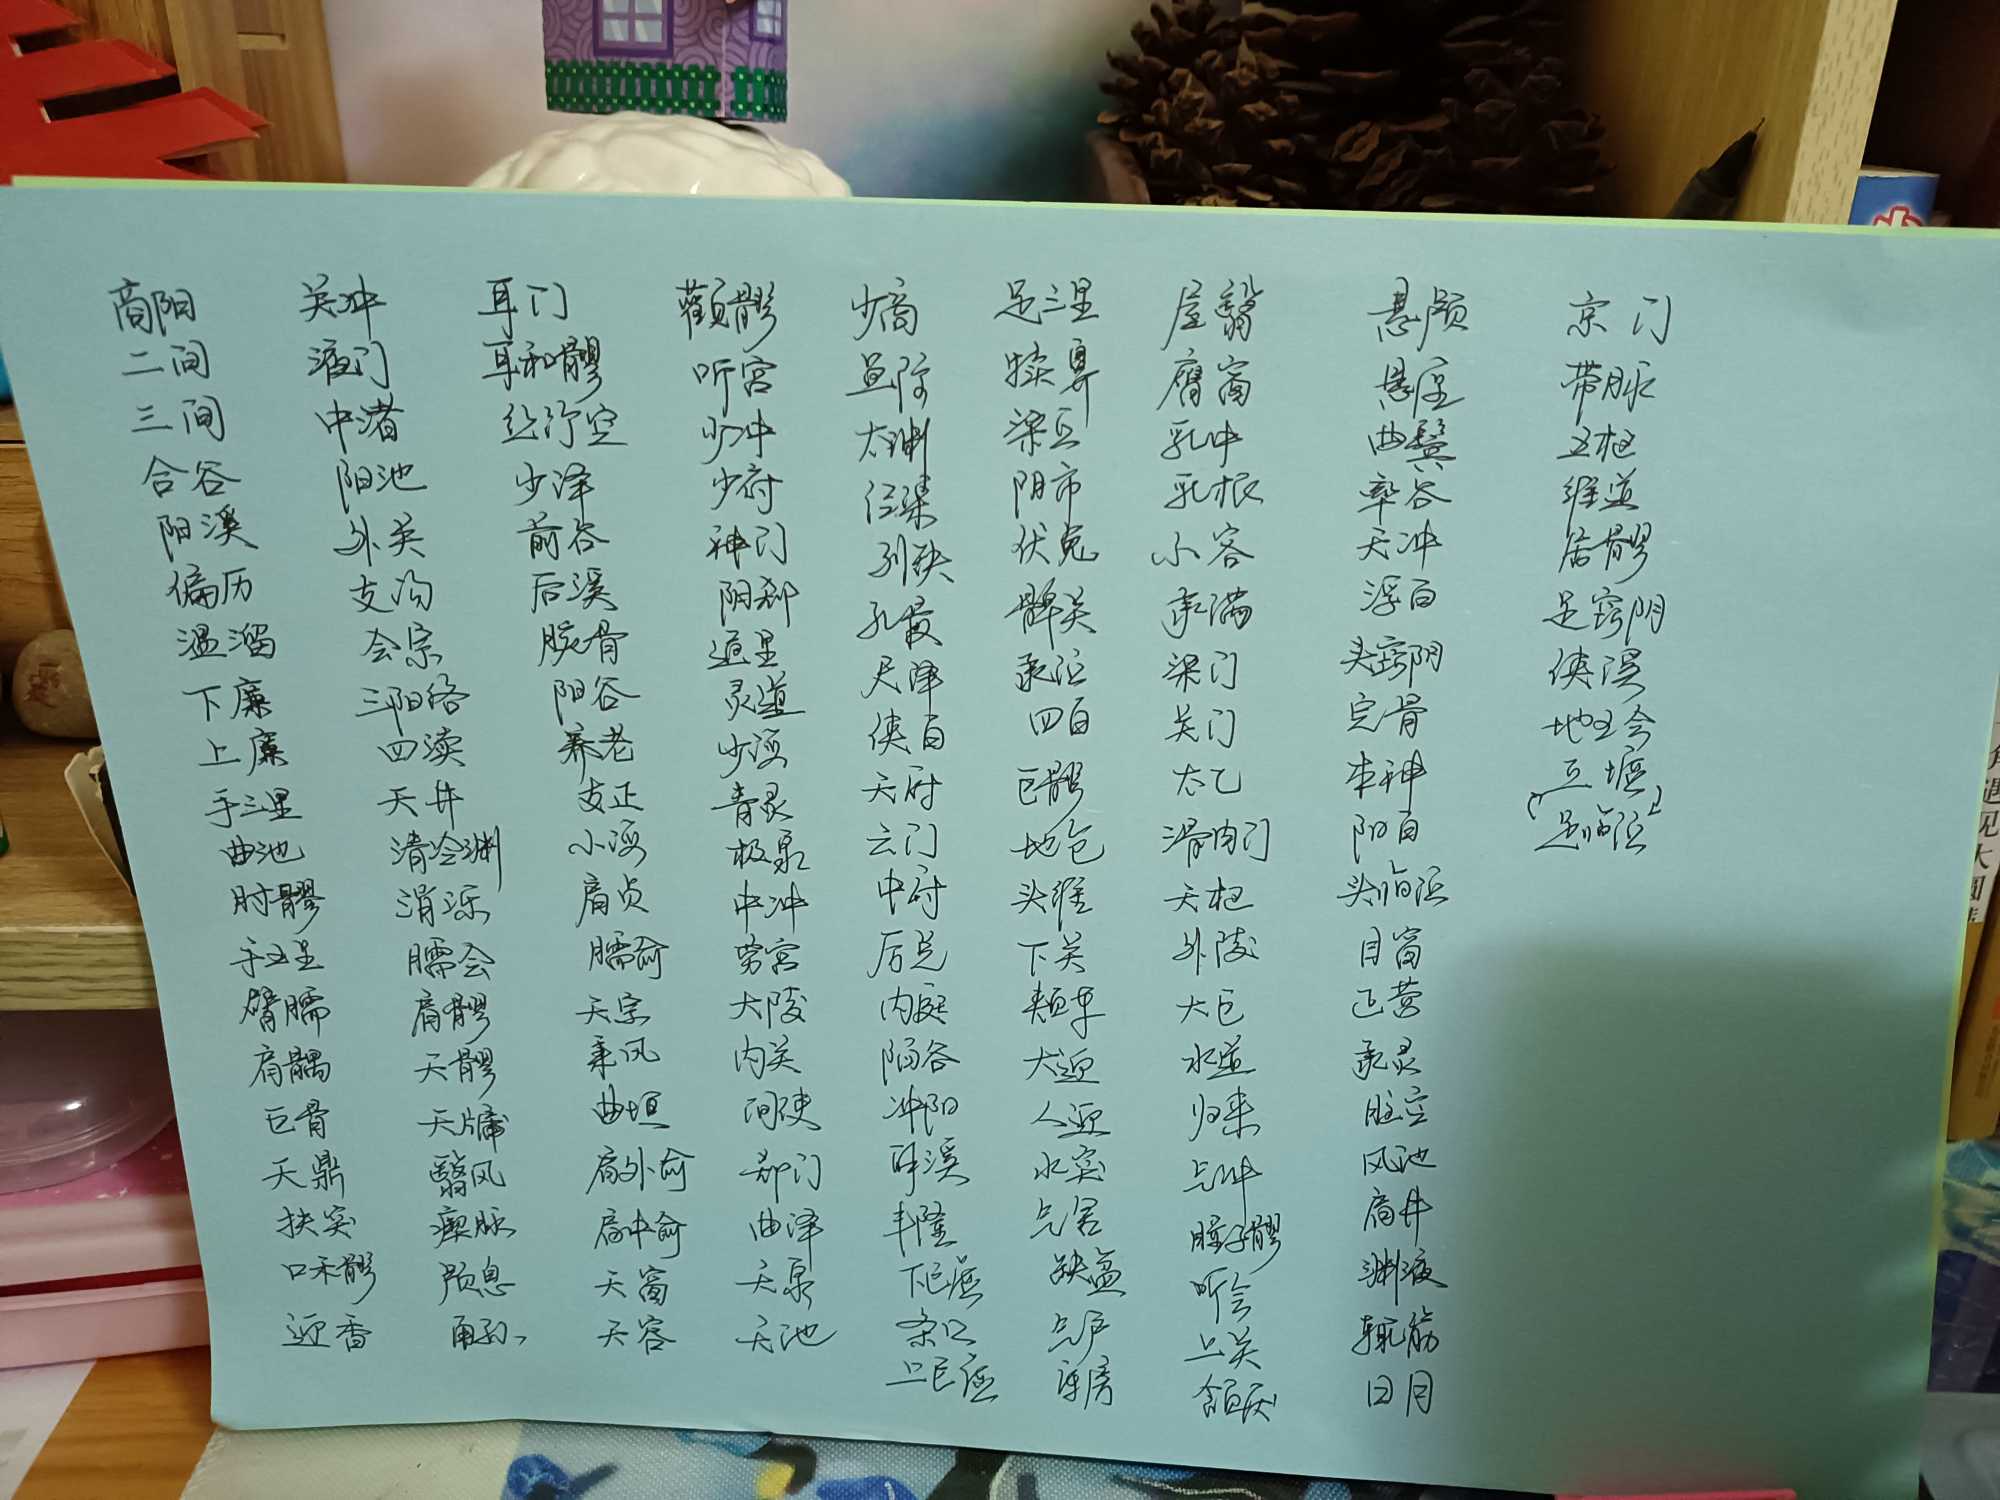 商阳
二间
三间
合谷
阳溪
偏历
温溜
下廉
上廉
手三里
曲池
肘髎
手五里
臂臑
肩髃
巨骨
天鼎
扶突
口禾髎
迎香
关冲
液门
中渚
阳池
外关
支沟
会宗
三阳络
四渎
天井
清冷渊
消泺
臑会
肩髎
天髎
天牖
翳风
瘈脉
颅息
角孙
耳门
耳和髎
丝竹空
少泽
前谷
后溪
腕骨
阳谷
养老
支正
小海
肩贞
臑俞
天宗
秉风
曲垣
肩外俞
肩中俞
天窗
天容
颧髎
听宫
少冲
少府
神门
阴郄
通里
灵道
少海
青灵
极泉
中冲
劳宫
大陵
内关
间使
郄门
曲泽
天泉
天池
少商
鱼际
太渊
经渠
列缺
孔最
尺泽
侠白
天府
云门
中府
厉兑
内庭
陷谷
冲阳
解溪
丰隆
下巨虚
条口
上巨虚
足三里
犊鼻
梁丘
阴市
伏兔
髀关
承泣
四白
巨髎
地仓
头维
下关
颊车
大迎
人迎
水突
气舍
缺盆
气户
库房
屋翳
膺窗
乳中
乳根
不容
承满
梁门
关门
太乙
滑肉门
天枢
外陵
大巨
水道
归来
气冲
瞳子髎
听会
上关
颔厌
悬颅
悬厘
曲鬓
率谷
天冲
浮白
头窍阴
完骨
本神
阳白
头临泣
目窗
正营
承灵
脑空
风池
肩井
渊液
辄筋
日月
京门
带脉
五枢
维道
居髎
足窍阴
侠溪
地五会
丘墟
足临泣
遇见大圆